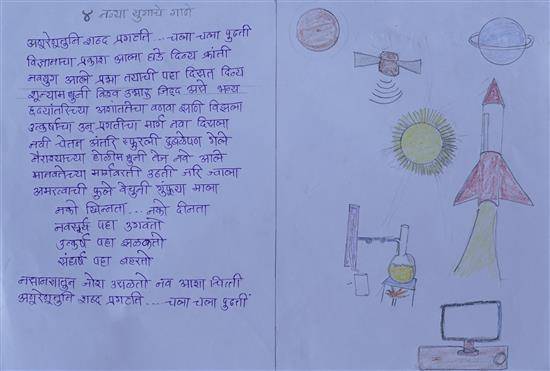 ४ नव्या युगाचे गाणे
अणुरेणुतुनि शब्द प्रगटति ... चला चला पुढती
विज्ञानाचा प्रकाश आला घडे दिव्य क्रांती
नवयुग आले प्रभा तयाची पहा दिसत दिव्य
शून्यामधुनी विश्व उभारू जिद्द असे भव्य
हृदयांतरिच्या अशांततेचा वणवा झणि विझला
उत्कर्षाचा उन् प्रगतीचा मार्ग नवा दिसला
नवी चेतना अंतरि स्फुरली दुबळेपण गेले
नैराश्याच्या होळीमधुनी तेज नवे आले
मानवतेच्या मार्गावरती उठती जरि ज्वाला
अमरत्वाची फुले वेचुनी गुंफूया माला
नको खिन्नता ... नको दीनता
नवसूर्य पहा उगवतो
उत्कर्ष पहा झळकतो
संघर्ष पहा बहरतो
नसानसातुन जोश उसळतो नव आशा चित्ती
अणुरेणुतुनि शब्द प्रगटति .... चला चला पुढती